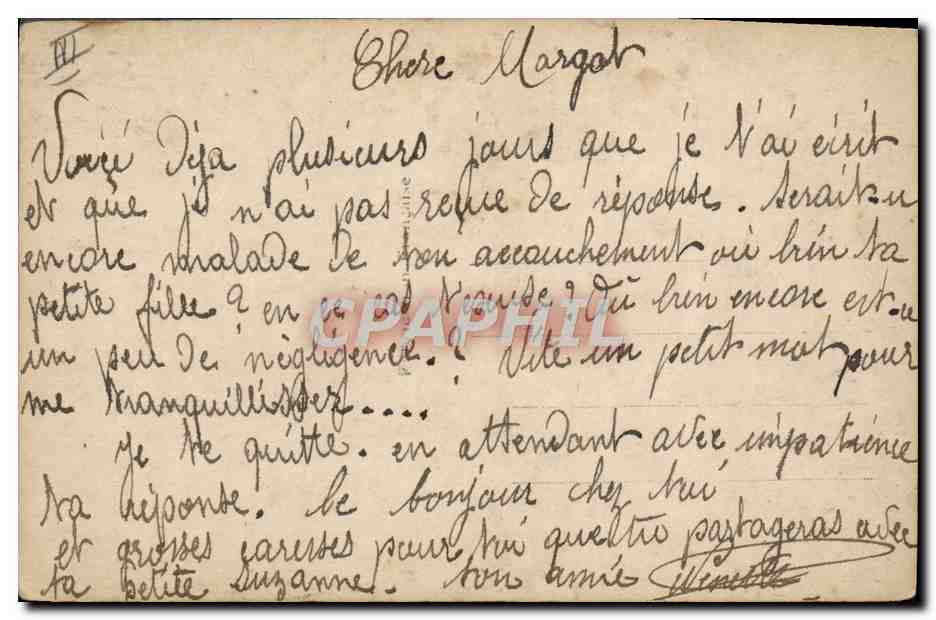 IVI
Chere Margot
Voiçi Dèja plusieurs jours que je t'ai ècrit
et que je n'ai pas reçue de réponse. serait-u
encore malade de ton accouchement où bien ta
petite fille? en ce cas t'excuse? Où bien encore est-ce
un peu de négligence.? Vite un petit mot pour
me tranquillissez....
Je te quitte. en attendant avec impatience
ta réponse. le bonjour chez toi
et grosses caresses pour toi que tu partageras avec
ta petite Suzanne. ton amie
CPAPHIL